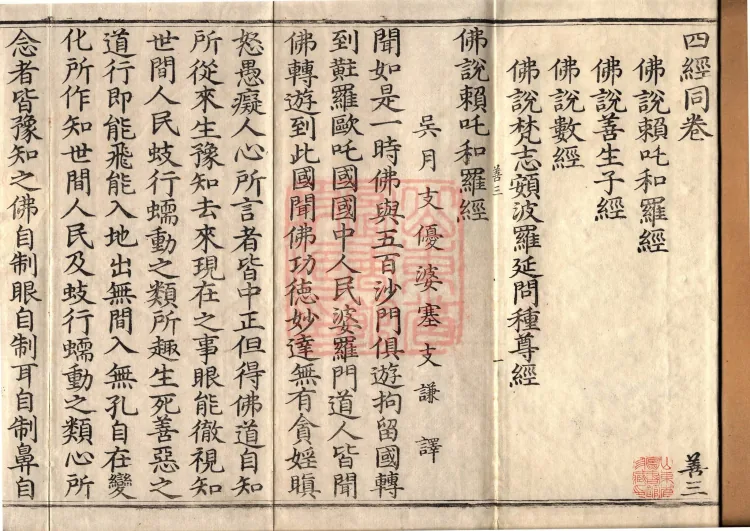 四經同卷
善三
佛說賴吒和羅經
佛說善生子經
佛說數經
佛說梵志頞波羅延問種尊經
善三
一
佛說賴吒和羅經
吳月支優婆塞支謙譯
聞如是一時佛與五百沙門俱遊拘留國轉
到黈羅歐吒國國中人民婆羅門道人皆聞
佛轉遊到此國聞佛功德妙達無有貪婬瞋
怒愚癡人心所言者皆中正但得佛道自知
所從來生豫知去來現在之事眼能徹視知
世間人民蚑行蠕動之類所趣生死善惡之
道行即能飛能入地出無間入無孔自在變
化所作知世間人民及蚑行蠕動之類心所
念者皆豫知之佛自制眼自制耳自制鼻自